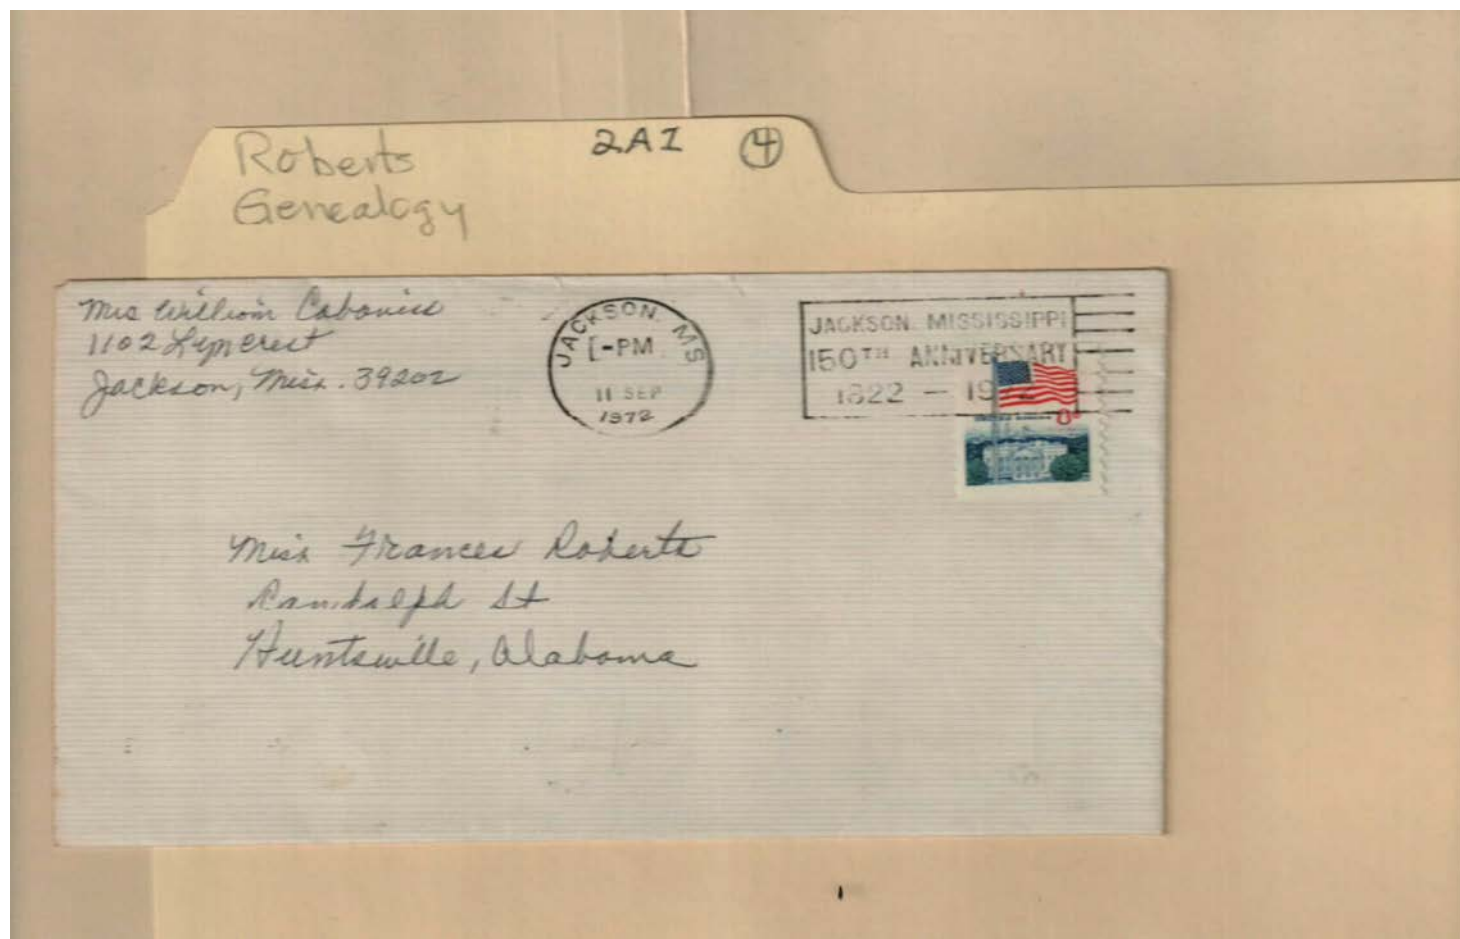 Roberts
Genealogy
2AI 4
Mrs William Cabaniss
1102 Lyncrest
Jackson, Miss. 39202
JACKSON, MS
PM
11 SEP
1972
JACKSON, MISSISSIPPI
150TH ANNIVERSARY
1822 - 1972
8c
Miss Frances Roberts
Randolph St
Huntsville, Alabama